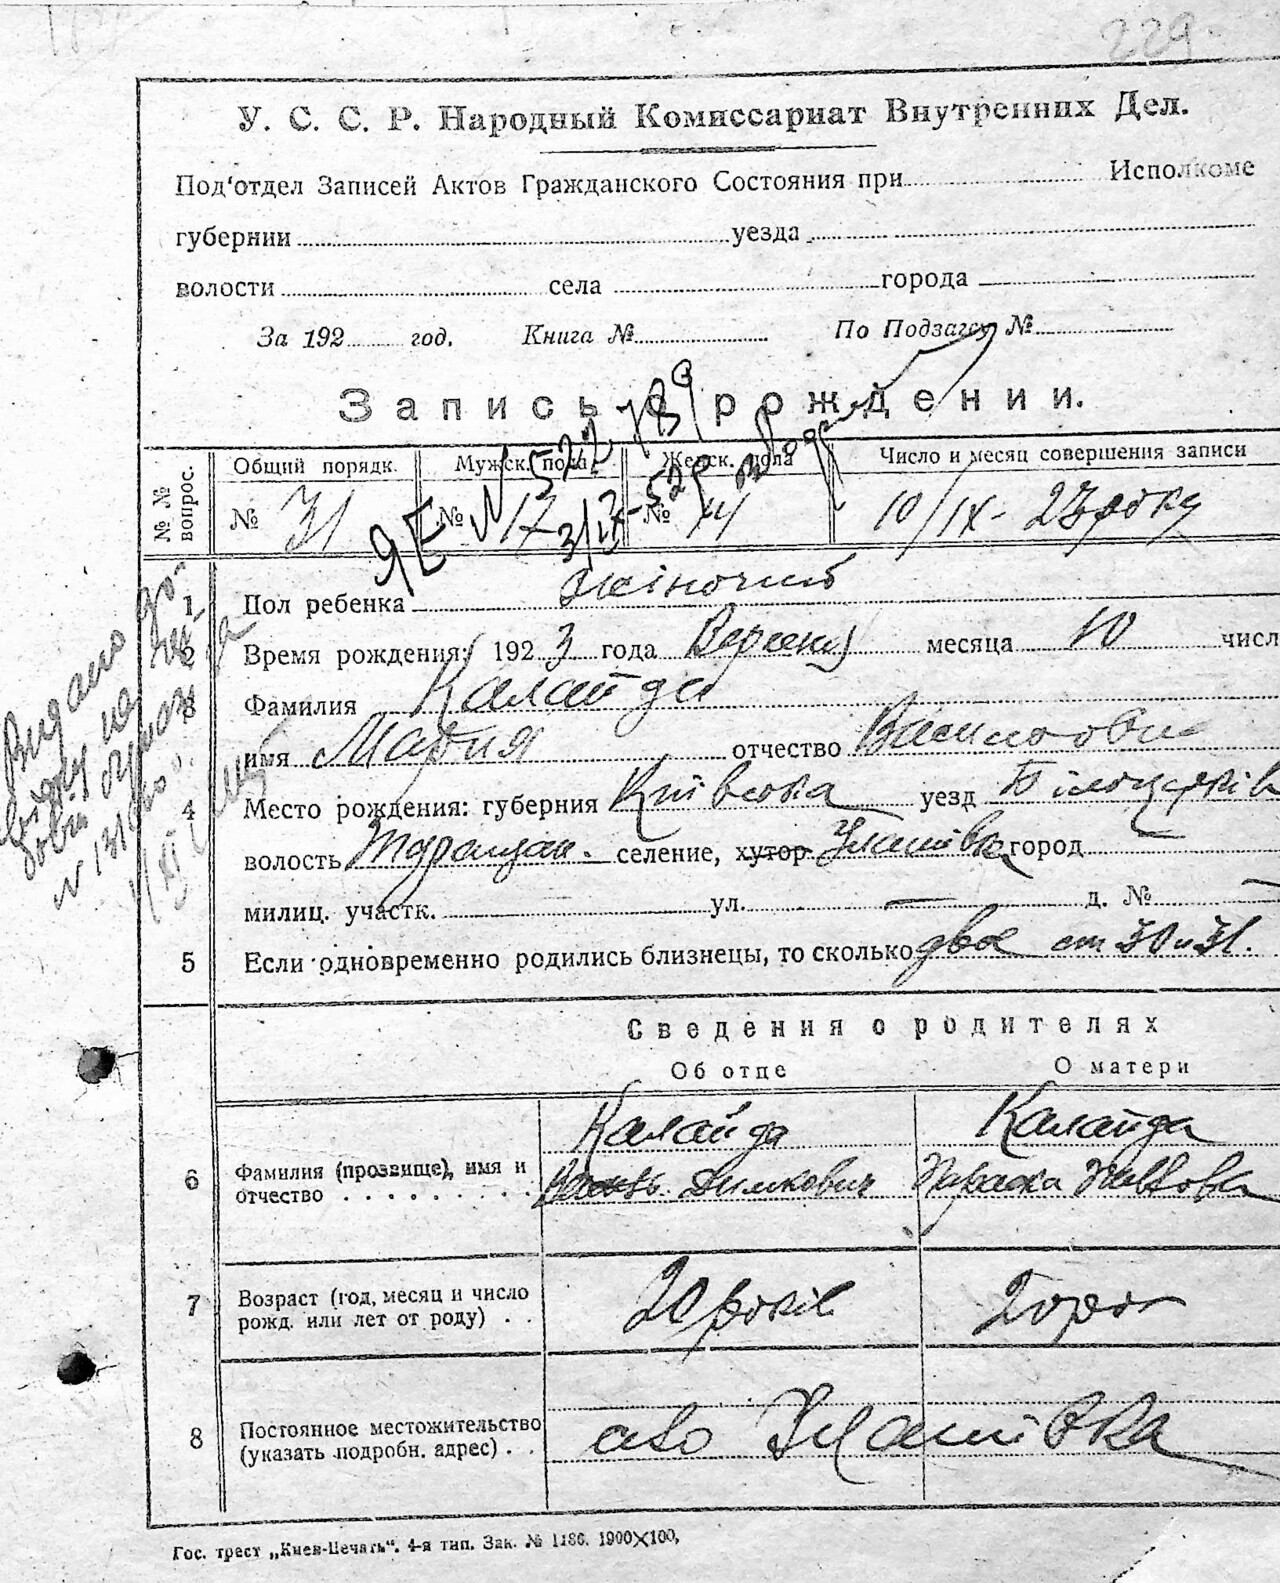 229
У. С. С. Р. Народный Комиссариат Внутренних Дел.
Под'отдел Записей Актов Гражданского Состояния при Исполкоме
губернии уезда
волости села города
За 192 год. Книга № По Подзагсу №
Запись о рождении.
№ № вопрос.
Общий порядк. Мужск. пола Женск. пола Число и месяц совершения записи
№ 31 № 17 № 14 10/IX- 23 року
ЯЕ N 522789
1 Пол ребенка жіночий
2 Время рождения: 1923 года Вересня месяца 10 числ
3 Фамилия Калайда
имя Мария отчество Василовна
4 Место рождения: губерния Київська уезд Білоцерків
волость Таращан. селение, хутор Улашівка город
милиц. участк. ул. — д. № —
5 Если одновременно родились близнецы, то сколько двое ст 30 и 31.
Видано
Сведения о родителях
Об отце О матери
6 Фамилия (прозвище), имя и отчество Калайда Калайда
Димкович Параска
7 Возраст (год, месяц и число рожд. или лет от роду) 20 років 20 рок
8 Постоянное местожительство (указать подробн. адрес) село Улашівка
Гос. трест „Киев-Печать". 4-я тип. Зак. № 1186. 1900×100,